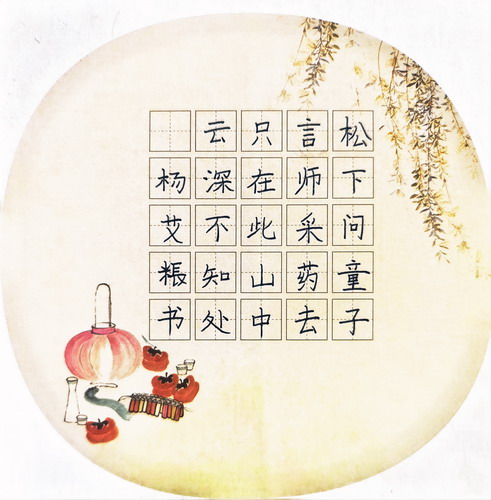 松下问童子
言师采药去
只在此山中
云深不知处
杨艾粻书